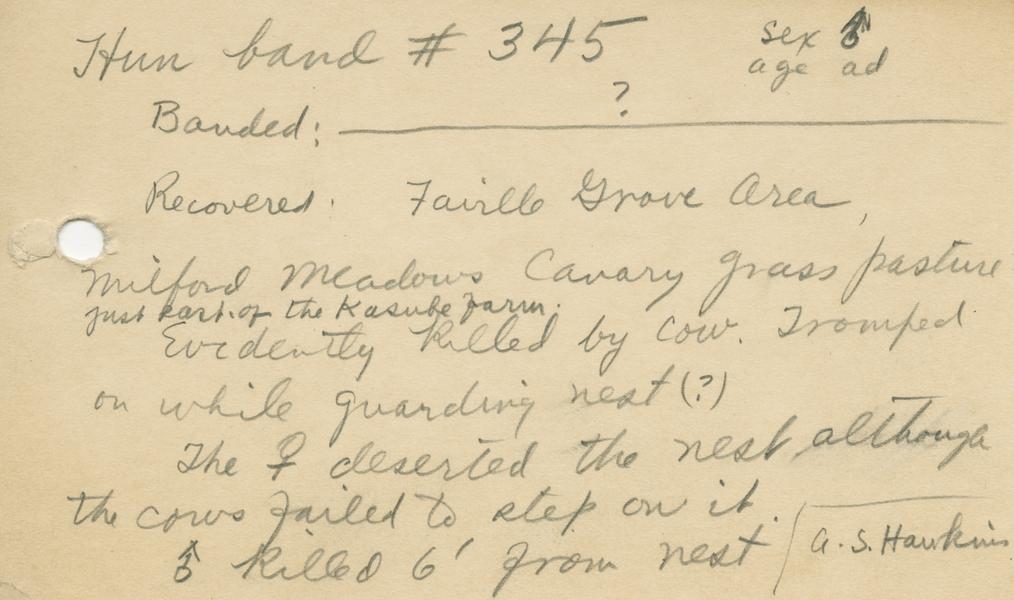 Hun band # 345 sex ♂
age ad
Banded: ?
Recovered: Faville Grove Area,
Milford Meadows Canary grass pasture
just east of the Kasube farm.
Evidently killed by cow. Tromped
on while guarding nest (?)
The ♀ deserted the nest although
the cows failed to step on it.
♂ killed 6' from nest
A. S. Hawkins